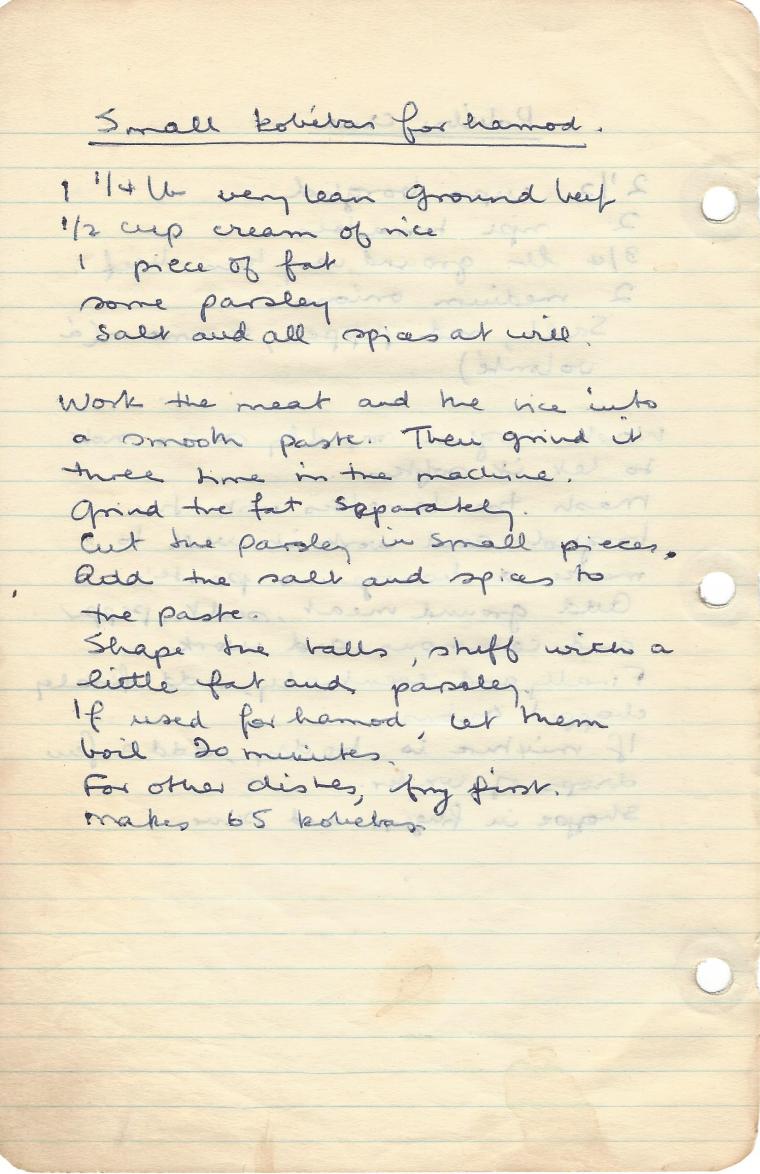 Small kobébas for hamod.
1 1/4 lb very lean ground beef
1/2 cup cream of rice
1 piece of fat
some parsley
salt and all spices at will.
Work the meat and the rice into
a smooth paste. Then grind it
three time in the machine.
Grind the fat separately.
Cut the parsley in small pieces.
Add the salt and spices to
the paste.
Shape the balls, stuff with a
little fat and parsley.
If used for hamod, let them
boil 20 minutes.
For other dishes, fry first.
makes 65 kobebas